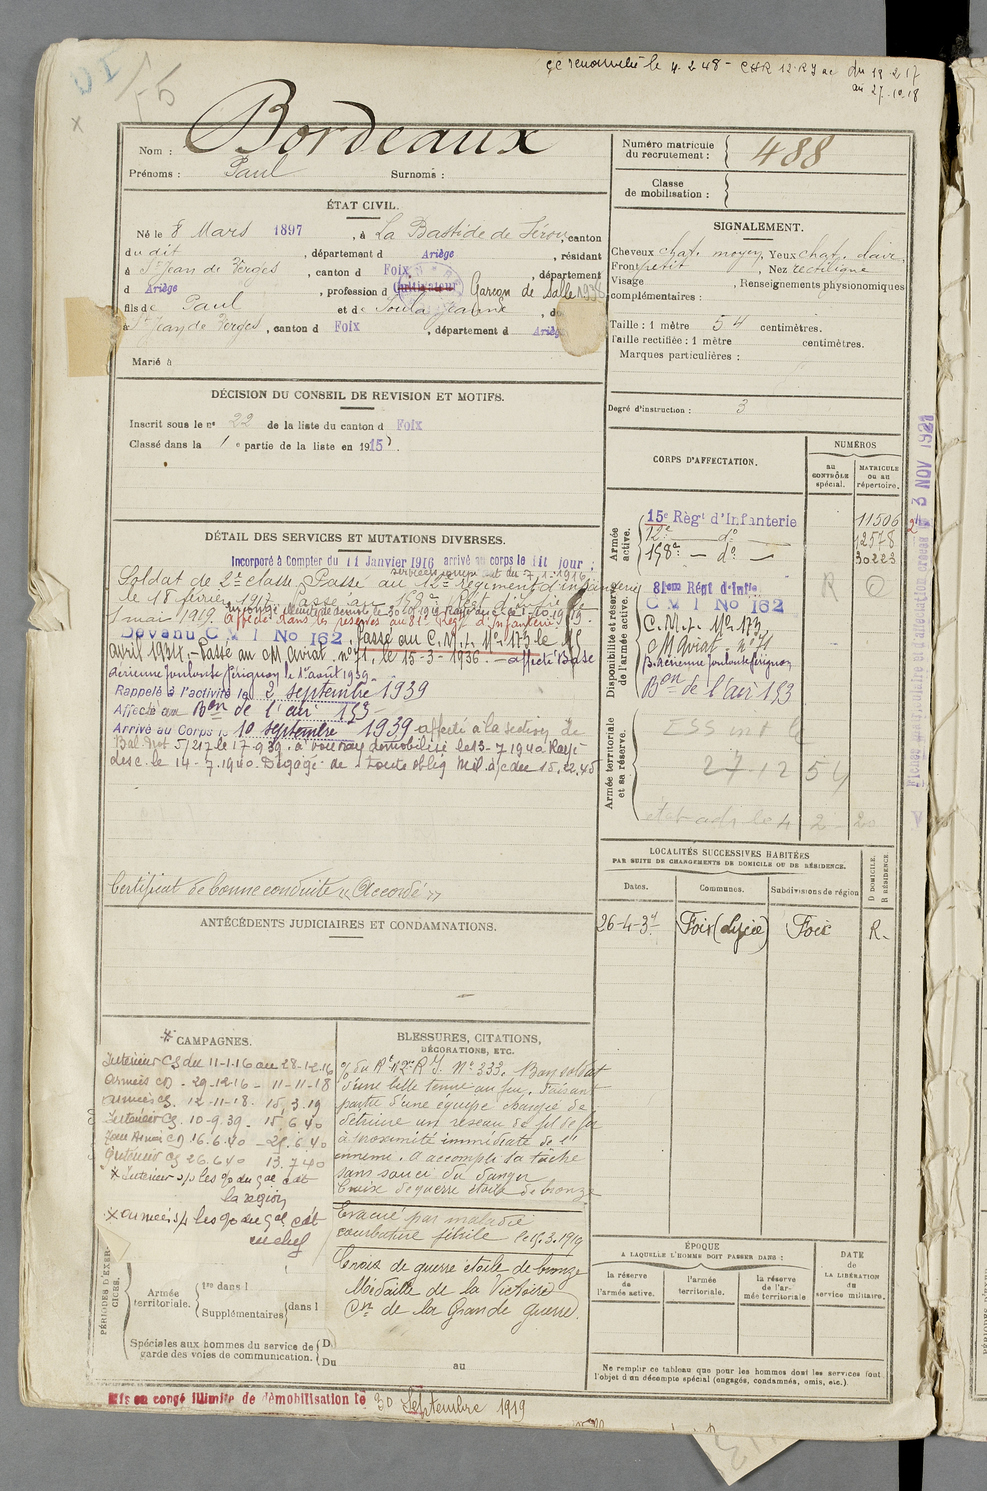 renouvelé le 4.2.48 - du 19.2.17
au 27.10.18
Nom : Bordeaux
Prénoms : Paul Surnoms :
Numéro matricule
du recrutement : 488
Classe
de mobilisation :
ÉTAT CIVIL.
Né le 8 Mars 1897, à La Bastide de Sérou, canton
du dit, département d Ariège, résidant
à St Jean de Verges, canton d Foix, département
d Ariège, profession d Cultivateur Garçon de Salle 1938
fils de Paul et de Soula Jeanne, do
à St Jean de Verges, canton d Foix, département d Ariège
Marié à
SIGNALEMENT.
Cheveux chat. moyen, Yeux chat. clair,
Front petit, Nez rectiligne
Visage , Renseignements physionomiques
complémentaires :
Taille : 1 mètre 54 centimètres.
Taille rectifiée : 1 mètre centimètres.
Marques particulières :
Degré d'instruction : 3
DÉCISION DU CONSEIL DE REVISION ET MOTIFS.
Inscrit sous le no 22 de la liste du canton d Foix
Classé dans la 1e partie de la liste en 1915.
DÉTAIL DES SERVICES ET MUTATIONS DIVERSES.
Incorporé à Compter du 11 Janvier 1916 arrivé au corps le dit jour ;
Soldat de 2e classe. Passé au 12e régiment d'infanterie
le 18 février 1917. Passé au
1 mai 1919. affecté dans les réserves au 81e Régt d'Infanterie.
Devenu C M I No 162. Passé au C.M.I. No 173 le
avril 1934. - Passé au CM Aviat. no 71, le 15-3-1936. - affecté Base
Aérienne Toulouse Pérignon le 1er août 1939.
Rappelé à l'activité le 2 septembre 1939
Affecté au Bon de l'air 153
Arrivé au Corps le 10 septembre 1939 affecté à la section de
Bal. Not 5/217 le 17.9.39. à Vouvray démobilisé le 13-7-1940 Rayé
des c. le 14-7-1940. Dégagé de toute oblig. Mil. à/c du 15.12.45
Certificat de bonne conduite "Accordé"
CORPS D'AFFECTATION.
NUMÉROS
au
CONTRÔLE
spécial.
MATRICULE
ou au
répertoire.
Armée
active.
15e Régt d'Infanterie 11506
12e do 12578
158e - do - 30223
Disponibilité et réserve
de l'armée active.
81em Régt d'Infie R O
C M I No 162
C.M.I. No 173
CM Aviat - no 71
B. Aérienne Toulouse Pérignon
Bon de l'air 153
Armée territoriale
et sa réserve.
27.12 54
le 4-2-20
Fiches matriculaire et d'affectation créées le 3 NOV 1921
LOCALITÉS SUCCESSIVES HABITÉES
PAR SUITE DE CHANGEMENTS DE DOMICILE OU DE RÉSIDENCE.
Dates. Communes. Subdivisions de région
D DOMICILE.
R RÉSIDENCE.
26-4-34 Foix (Lycée) Foix R.
ANTÉCÉDENTS JUDICIAIRES ET CONDAMNATIONS.
CAMPAGNES.
Intérieur CS du 11-1-16 au 28-12-16
Armées CD - 29-12-16 - 11-11-18
Armées CS. 12-11-18. 15.3.19
Intérieur CS. 10-9.39. 15.6.40
Zone Armées CD 16.6.40 - 25.6.40
Intérieur CS 26.6.40 13.7.40
la région
en chef
BLESSURES, CITATIONS,
DÉCORATIONS, ETC.
O/ du Rt 12e R I. No 333. Bon soldat
d'une belle tenue au feu. Faisant
partie d'une équipe chargée de
détruire un réseau de fil de fer
à proximité immédiate de l'
ennemi. a accompli sa tâche
sans souci du danger
Croix de guerre étoile de bronze
Évacué par maladie
courbature fébrile le 15.3.1919
Croix de guerre étoile de bronze
Médaille de la Victoire
Cve de la Grande guerre.
PÉRIODES D'EXERCICES.
Armée
territoriale.
1re dans l
Supplémentaires dans l
Spéciales aux hommes du service de
garde des voies de communication.
D.
Du au
ÉPOQUE
A LAQUELLE L'HOMME DOIT PASSER DANS :
la réserve
de
l'armée active.
l'armée
territoriale.
la réserve
de l'ar-
mée territoriale
DATE
de
LA LIBÉRATION
du
service militaire.
Ne remplir ce tableau que pour les hommes dont les services font
l'objet d'un décompte spécial (engagés, condamnés, omis, etc.).
Mis en congé illimité de démobilisation le 30 Septembre 1919